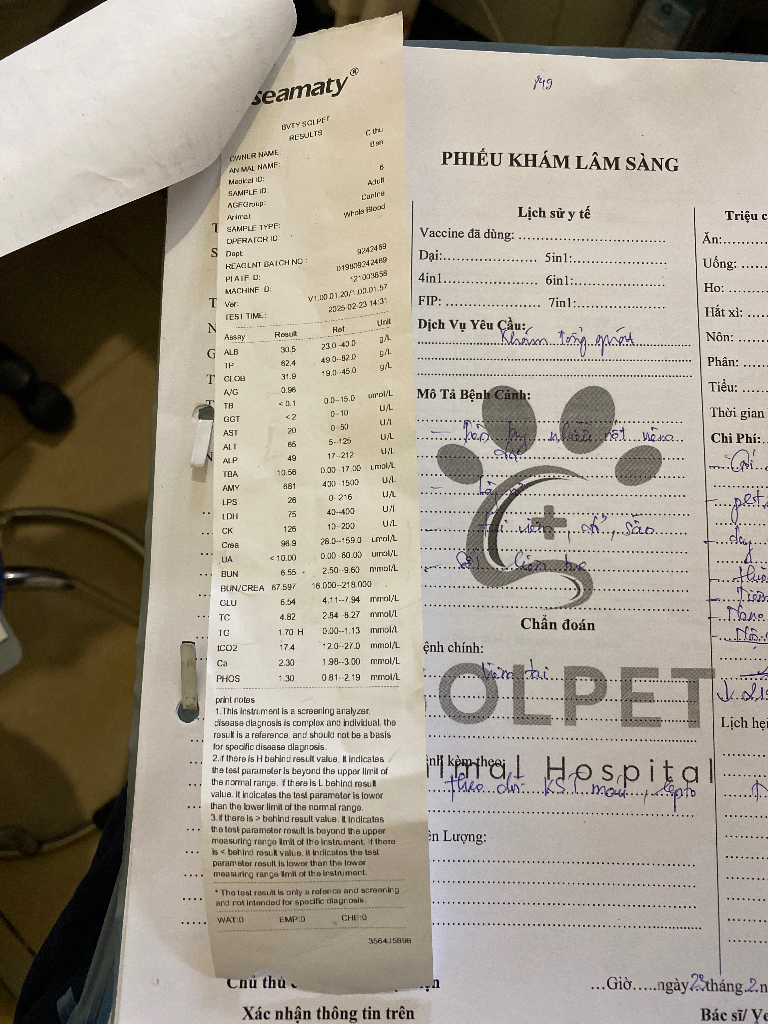 seamaty®
BVTY SOLPET
RESULTS
OWNER NAME: C thu
ANIMAL NAME: Ben
Medical ID:
SAMPLE ID: 6
AGEGroup: Adult
Animal: Canine
SAMPLE TYPE: Whole Blood
OPERATOR ID
Dept
REAGENT BATCH NO: 9242469
PLATE ID: 019809242469
MACHINE ID: 121003658
Ver: V1.00.01.20/1.00.01.57
TEST TIME: 2025-02-23 14:31
Assay Result Ref Unit
ALB 30.5 23.0--40.0 g/L
TP 62.4 49.0--82.0 g/L
GLOB 31.9 19.0--45.0 g/L
A/G 0.96
TB <0.1 0.0--15.0 umol/L
GGT <2 0--10 U/L
AST 20 0--50 U/L
ALT 65 5--125 U/L
ALP 49 17--212 U/L
TBA 10.56 0.00--17.00 umol/L
AMY 681 400--1500 U/L
LPS 26 0--216 U/L
LDH 75 40--400 U/L
CK 126 10--200 U/L
Crea 96.9 26.0--159.0 umol/L
UA <10.00 0.00--60.00 umol/L
BUN 6.55 2.50--9.60 mmol/L
BUN/CREA 67.597 16.000--218.000
GLU 6.54 4.11--7.94 mmol/L
TC 4.82 2.84--8.27 mmol/L
TG 1.70 H 0.00--1.13 mmol/L
tCO2 17.4 12.0--27.0 mmol/L
Ca 2.30 1.98--3.00 mmol/L
PHOS 1.30 0.81--2.19 mmol/L
print notes
1. This instrument is a screening analyzer,
disease diagnosis is complex and individual, the
result is a reference, and should not be a basis
for specific disease diagnosis.
2.if there is H behind result value, it indicates
the test parameter is beyond the upper limit of
the normal range, if there is L behind result
value, it indicates the test parameter is lower
than the lower limit of the normal range.
3.if there is > behind result value, it indicates
the test parameter result is beyond the upper
measuring range limit of the instrument, if there
is < behind result value, it indicates the test
parameter result is lower than the lower
measuring range limit of the instrument.
* The test result is only a refence and screening
and not intended for specific diagnosis.
WAT:0 EMP:0 CHE:0
3564J5896
149
PHIẾU KHÁM LÂM SÀNG
Lịch sử y tế
Vaccine đã dùng:
Dại: 5in1:
4in1 6in1:
FIP: 7in1:
Dịch Vụ Yêu Cầu: Khám tổng quát
Mô Tả Bệnh Cảnh:
Chẩn đoán
ệnh chính: Viêm tai
nh kèm theo:
theo dõi KST máu, lepto
ên Lượng:
OLPET
imal Hospital
Triệu c
Ăn:
Uống:
Ho:
Hắt xì:
Nôn:
Phân:
Tiểu:
Thời gian
Chi Phí:
Lịch hẹ
Chủ thú
Xác nhận thông tin trên
Giờ.....ngày 23 tháng 2 n
Bác sĩ/ Ve